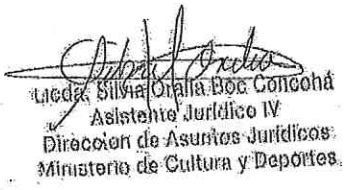 Licda. Silvia Oralia Boc Concohá
Asistente Jurídico IV
Dirección de Asuntos Jurídicos
Ministerio de Cultura y Deportes